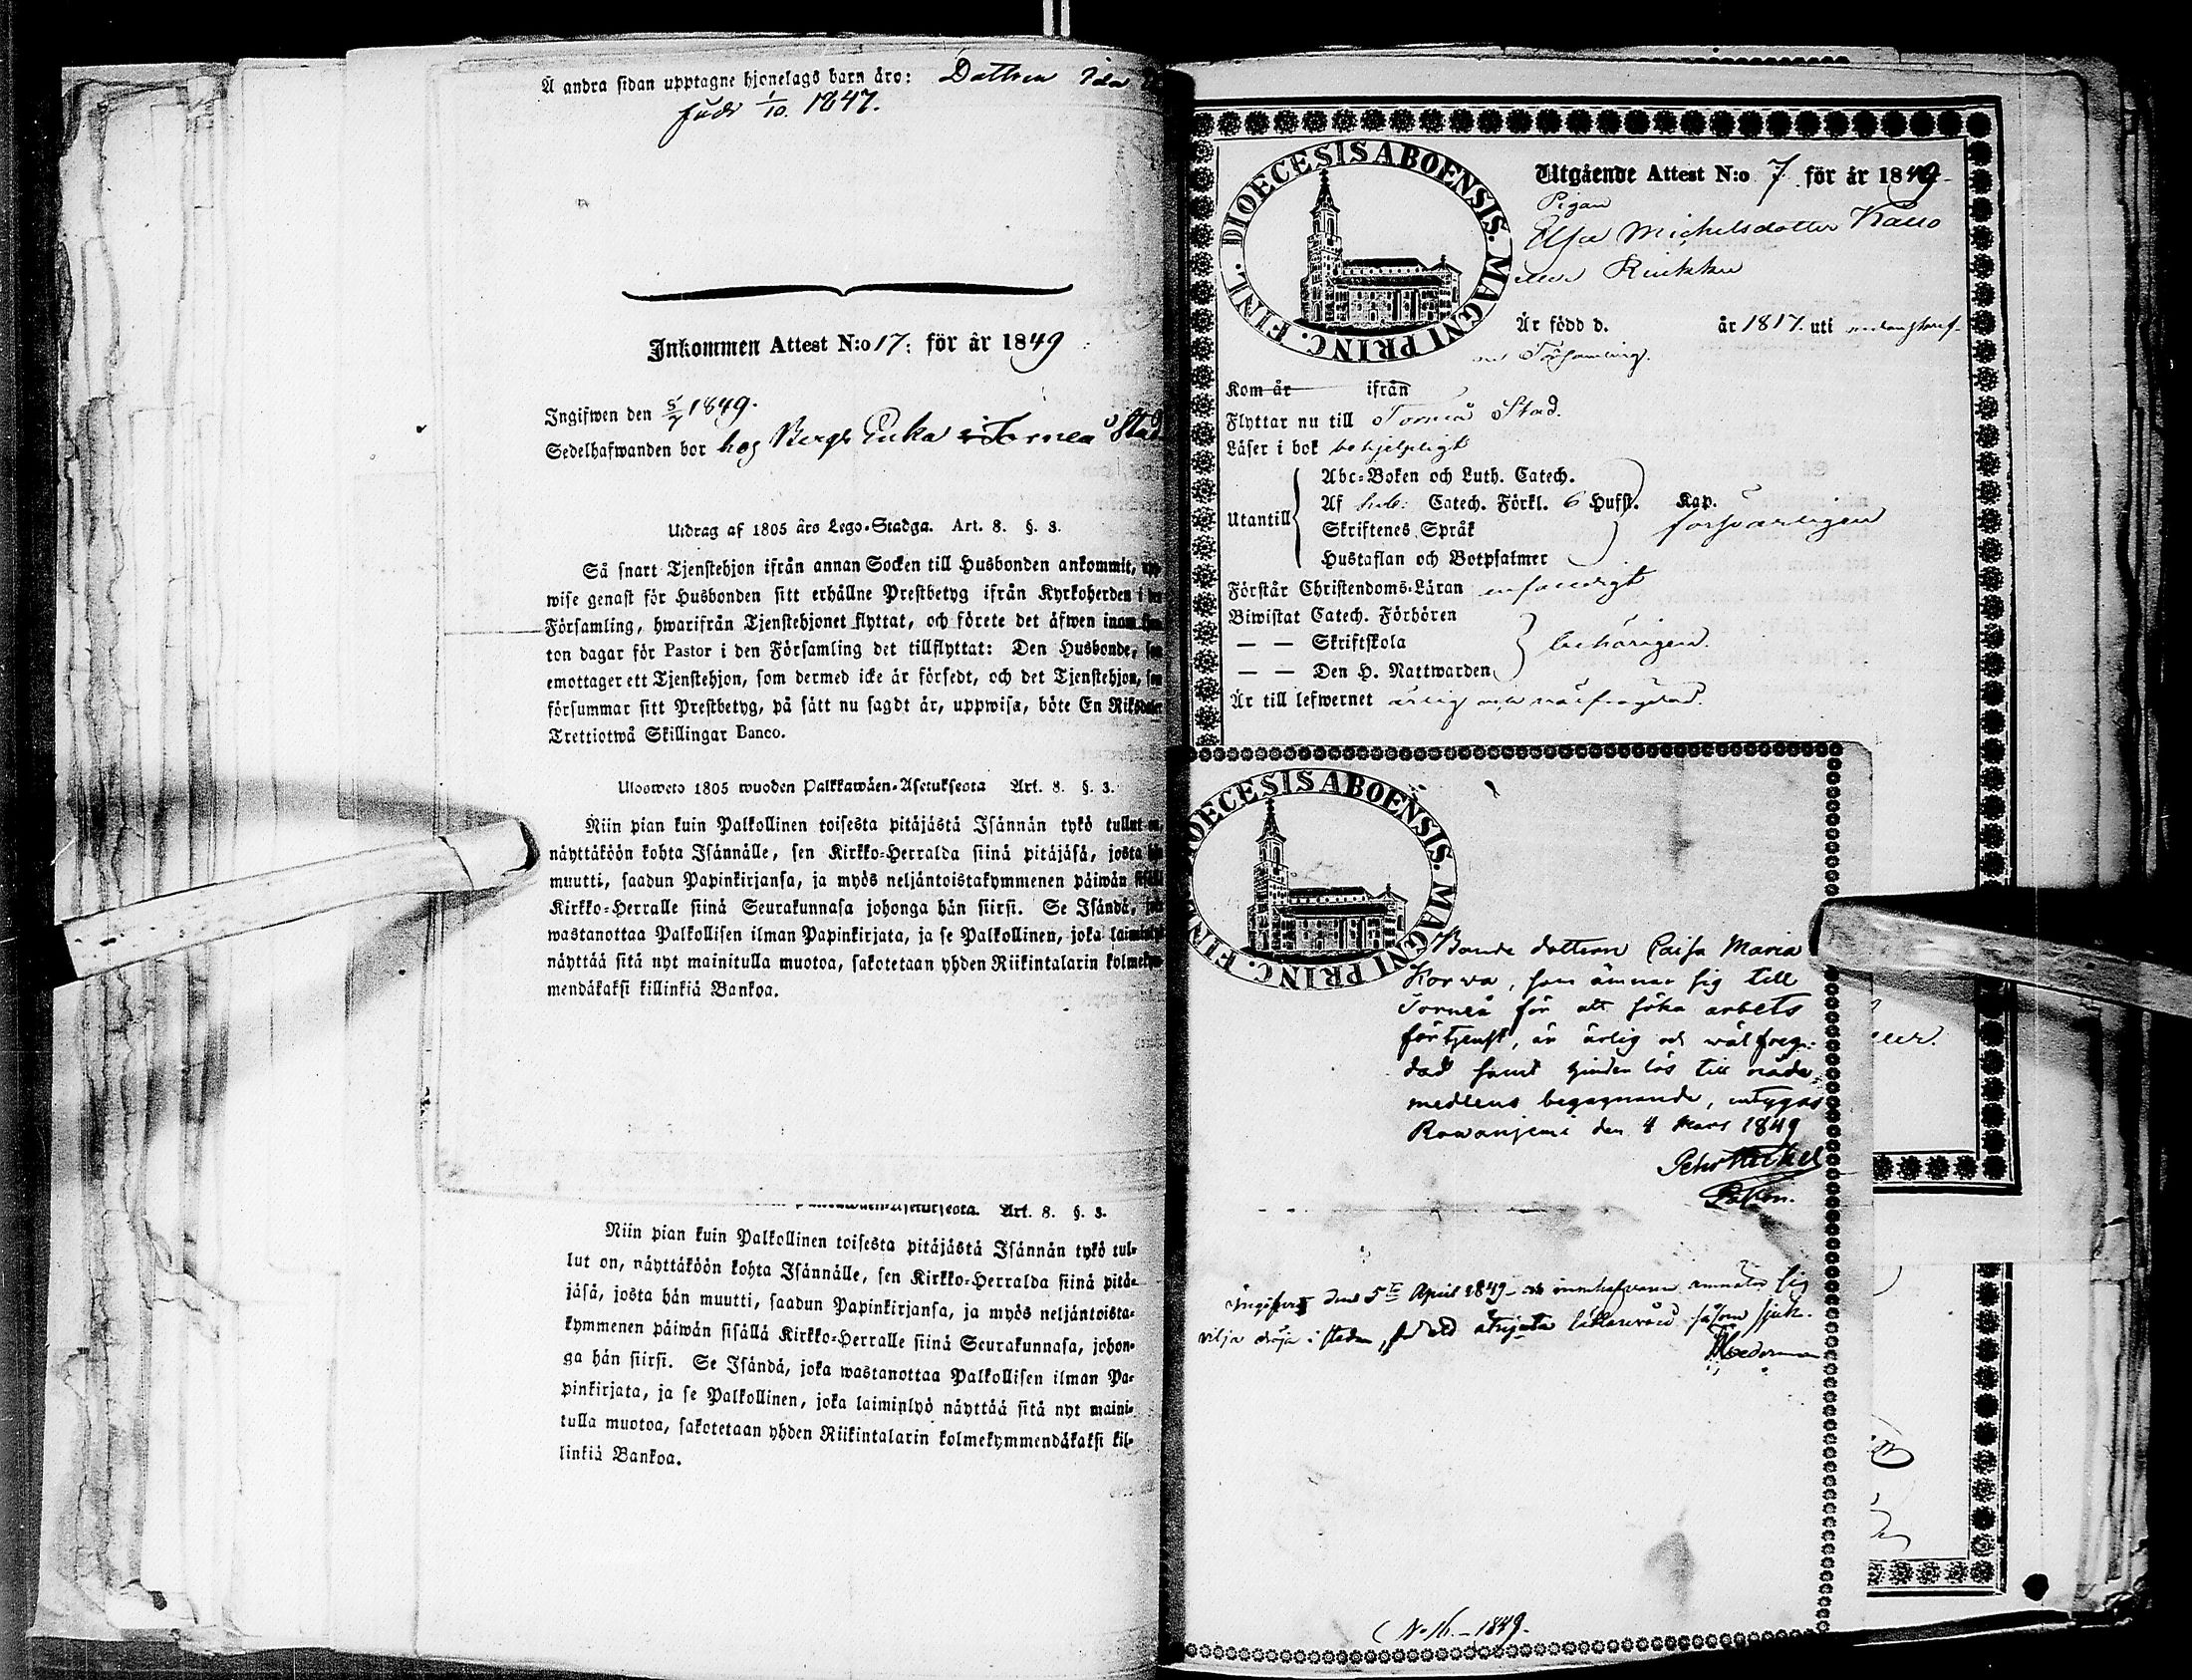 Å andra sidan upptagne hjonelags barn äro: Dottren Ida
född 1/10 1847.
Inkommen Attest N:o 17: för år 1849
Ingifwen den 5/7 1849.
Sedelhafwanden bor hos Bergs Enka i Torneå Stad
Utdrag af 1805 års Lego-Stadga. Art. 8. §. 3.
Så snart Tjenstehjon ifrån annan Socken till Husbonden ankommit,
wise genast för Husbonden sitt erhållne Prestbetyg ifrån Kyrkoherden i
Församling, hwarifrån Tjenstehjonet flyttat, och förete det äfwen inom
ton dagar för Pastor i den Församling det tillflyttat: Den Husbonde,
emottager ett Tjenstehjon, som dermed icke är försedt, och det Tjenstehjon,
försummar sitt Prestbetyg, på sätt nu sagdt är, uppwisa, böte En Riksdaler
Trettiotwå Skillingar Banco.
Ulosweto 1805 wuoden Palkkawäen-Asetuksesta Art. 8. §. 3.
Niin pian kuin Palkollinen toisesta pitäjästä Isännän tykö tullut
näyttäköön kohta Isännälle, sen Kirkko-Herralda siinä pitäjäsä, josta
muutti, saadun Papinkirjansa, ja myös neljäntoistakymmenen päiwän
Kirkko-Herralle siinä Seurakunnasa johonga hän siirsi. Se Isändä,
wastanottaa Palkollisen ilman Papinkirjata, ja se Palkollinen, joka
näyttää sitä nyt mainitulla muotoa, sakotetaan yhden Riikintalarin
mendäkaksi killinkiä Bankoa.
Art. 8. §. 3.
Niin pian kuin Palkollinen toisesta pitäjästä Isännän tykö tul-
lut on, näyttäköön kohta Isännälle, sen Kirkko-Herralda siinä pitä-
jäsä, josta hän muutti, saadun Papinkirjansa, ja myös neljäntoista-
kymmenen päiwän sisällä Kirkko-Herralle siinä Seurakunnasa, johon-
ga hän siirsi. Se Isändä, joka wastanottaa Palkollisen ilman Pa-
pinkirjata, ja se Palkollinen, joka laiminlyö näyttää sitä nyt maini-
tulla muotoa, sakotetaan yhden Riikintalarin kolmekymmendäkaksi kil-
linkiä Bankoa.
DIOECESIS ABOENSIS. MAGNI PRINC. FINL.
Utgående Attest N:o 7 för år 1849
Pigan
Elsa Michelsdotter Kallo
Är född d. år 1817. uti
Församling.
Kom år ifrån
Flyttar nu till Torneå Stad.
Läser i bok behjelpligt
Utantill
Abc-Boken och Luth. Catech.
Af Catech. Förkl. 6 Hufst. Kap.
Skriftenes Språk
försvarligen
Hustaflan och Botpsalmer
Förstår Christendoms-Läran enfaldigt
Biwistat Catech. Förhören
— — Skriftskola
behörigen.
— — Den H. Nattwarden
Är till lefwernet ärlig och välfrägdad.
DIOECESIS ABOENSIS. MAGNI PRINC. FINL.
Bonde dottren Caisa Maria
Korva, som ämnar sig till
Torneå för att söka arbets
förtjenst, är ärlig och wälfreg-
dad samt hinderlös till nåde
medlens begagnande, intygas
Rowaniemi den 4 Mars 1849
Ingifvet den 5te April 1849
vilja dröja i staden
(No 16. – 1849.